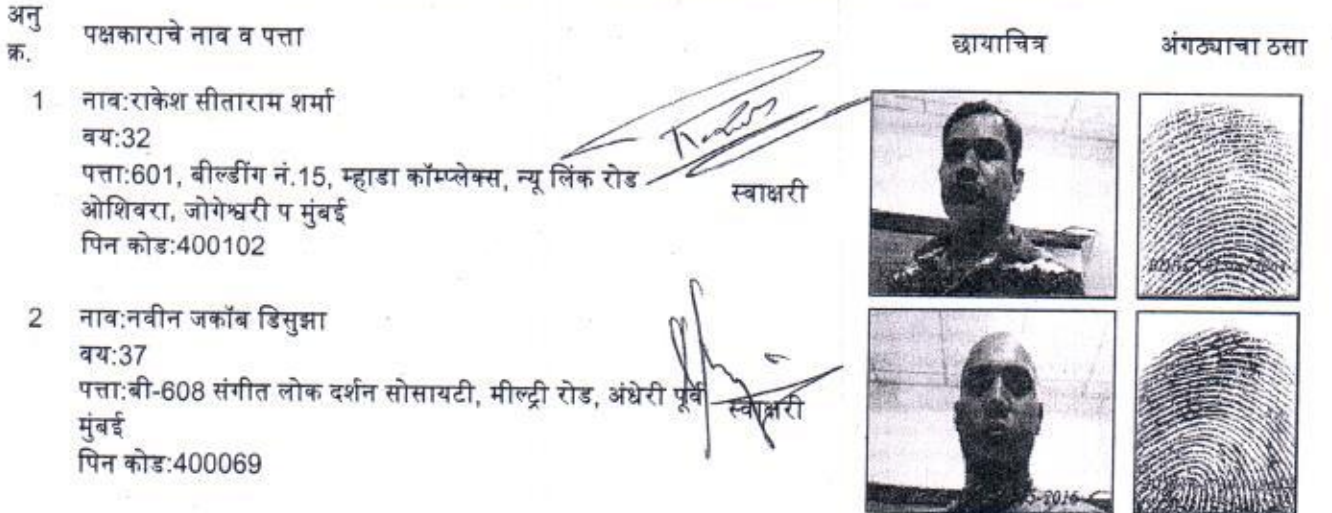 अनु क्र. पक्षकाराचे नाव व पत्ता छायाचित्र अंगठ्याचा ठसा
1 नाव:राकेश सीताराम शर्मा
वय:32
पत्ता:601, बील्डींग नं.15, म्हाडा कॉम्प्लेक्स, न्यू लिंक रोड
स्वाक्षरी
ओशिवरा, जोगेश्वरी प मुंबई
पिन कोड:400102
2 नाव:नवीन जकॉब डिसुझा
वय:37
पत्ता:बी-608 संगीत लोक दर्शन सोसायटी, मील्ट्री रोड, अंधेरी पूर्व
स्वाक्षरी
मुंबई
पिन कोड:400069